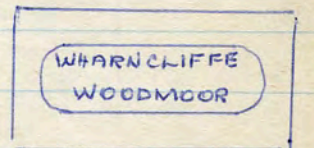 WHARNCLIFFE
WOODMOOR